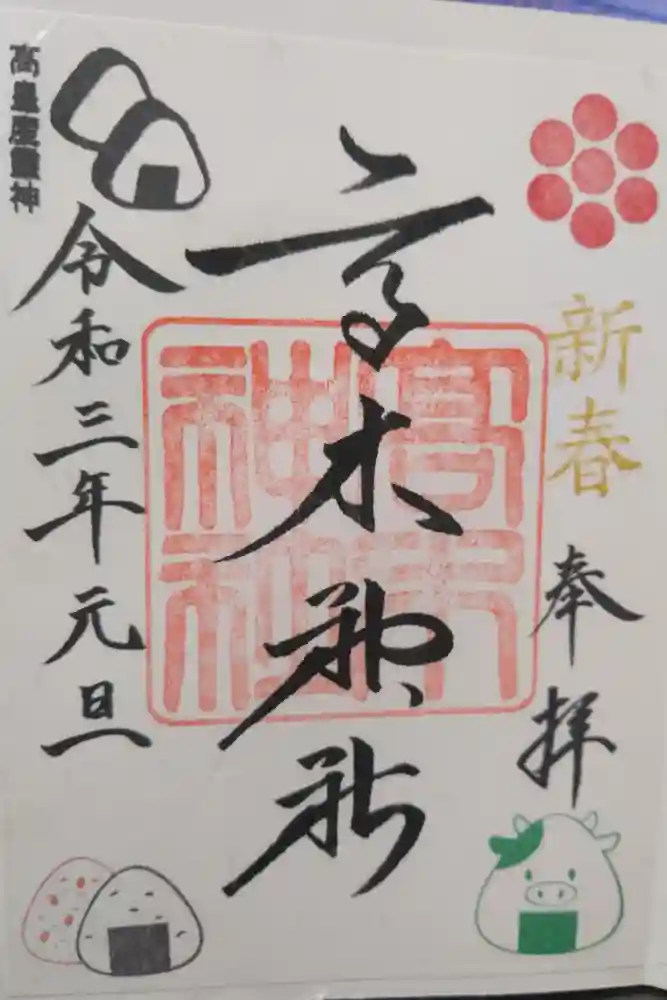 新春
奉拝
高木神社
高木
神社
令和三年元旦
高皇産靈神